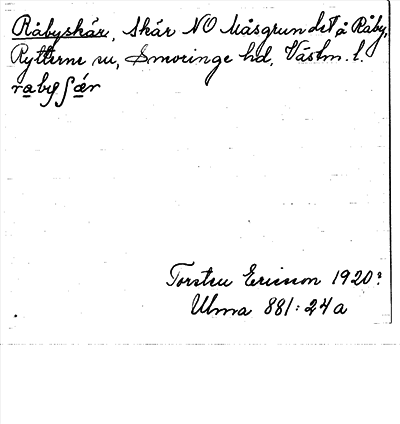 Råbyskär, skär NO Måsgrundet å Råby,
Rytterne sn, Snevringe hd, Västm. l.
Torsten Ericsson 1920:
Ulma 881:24a